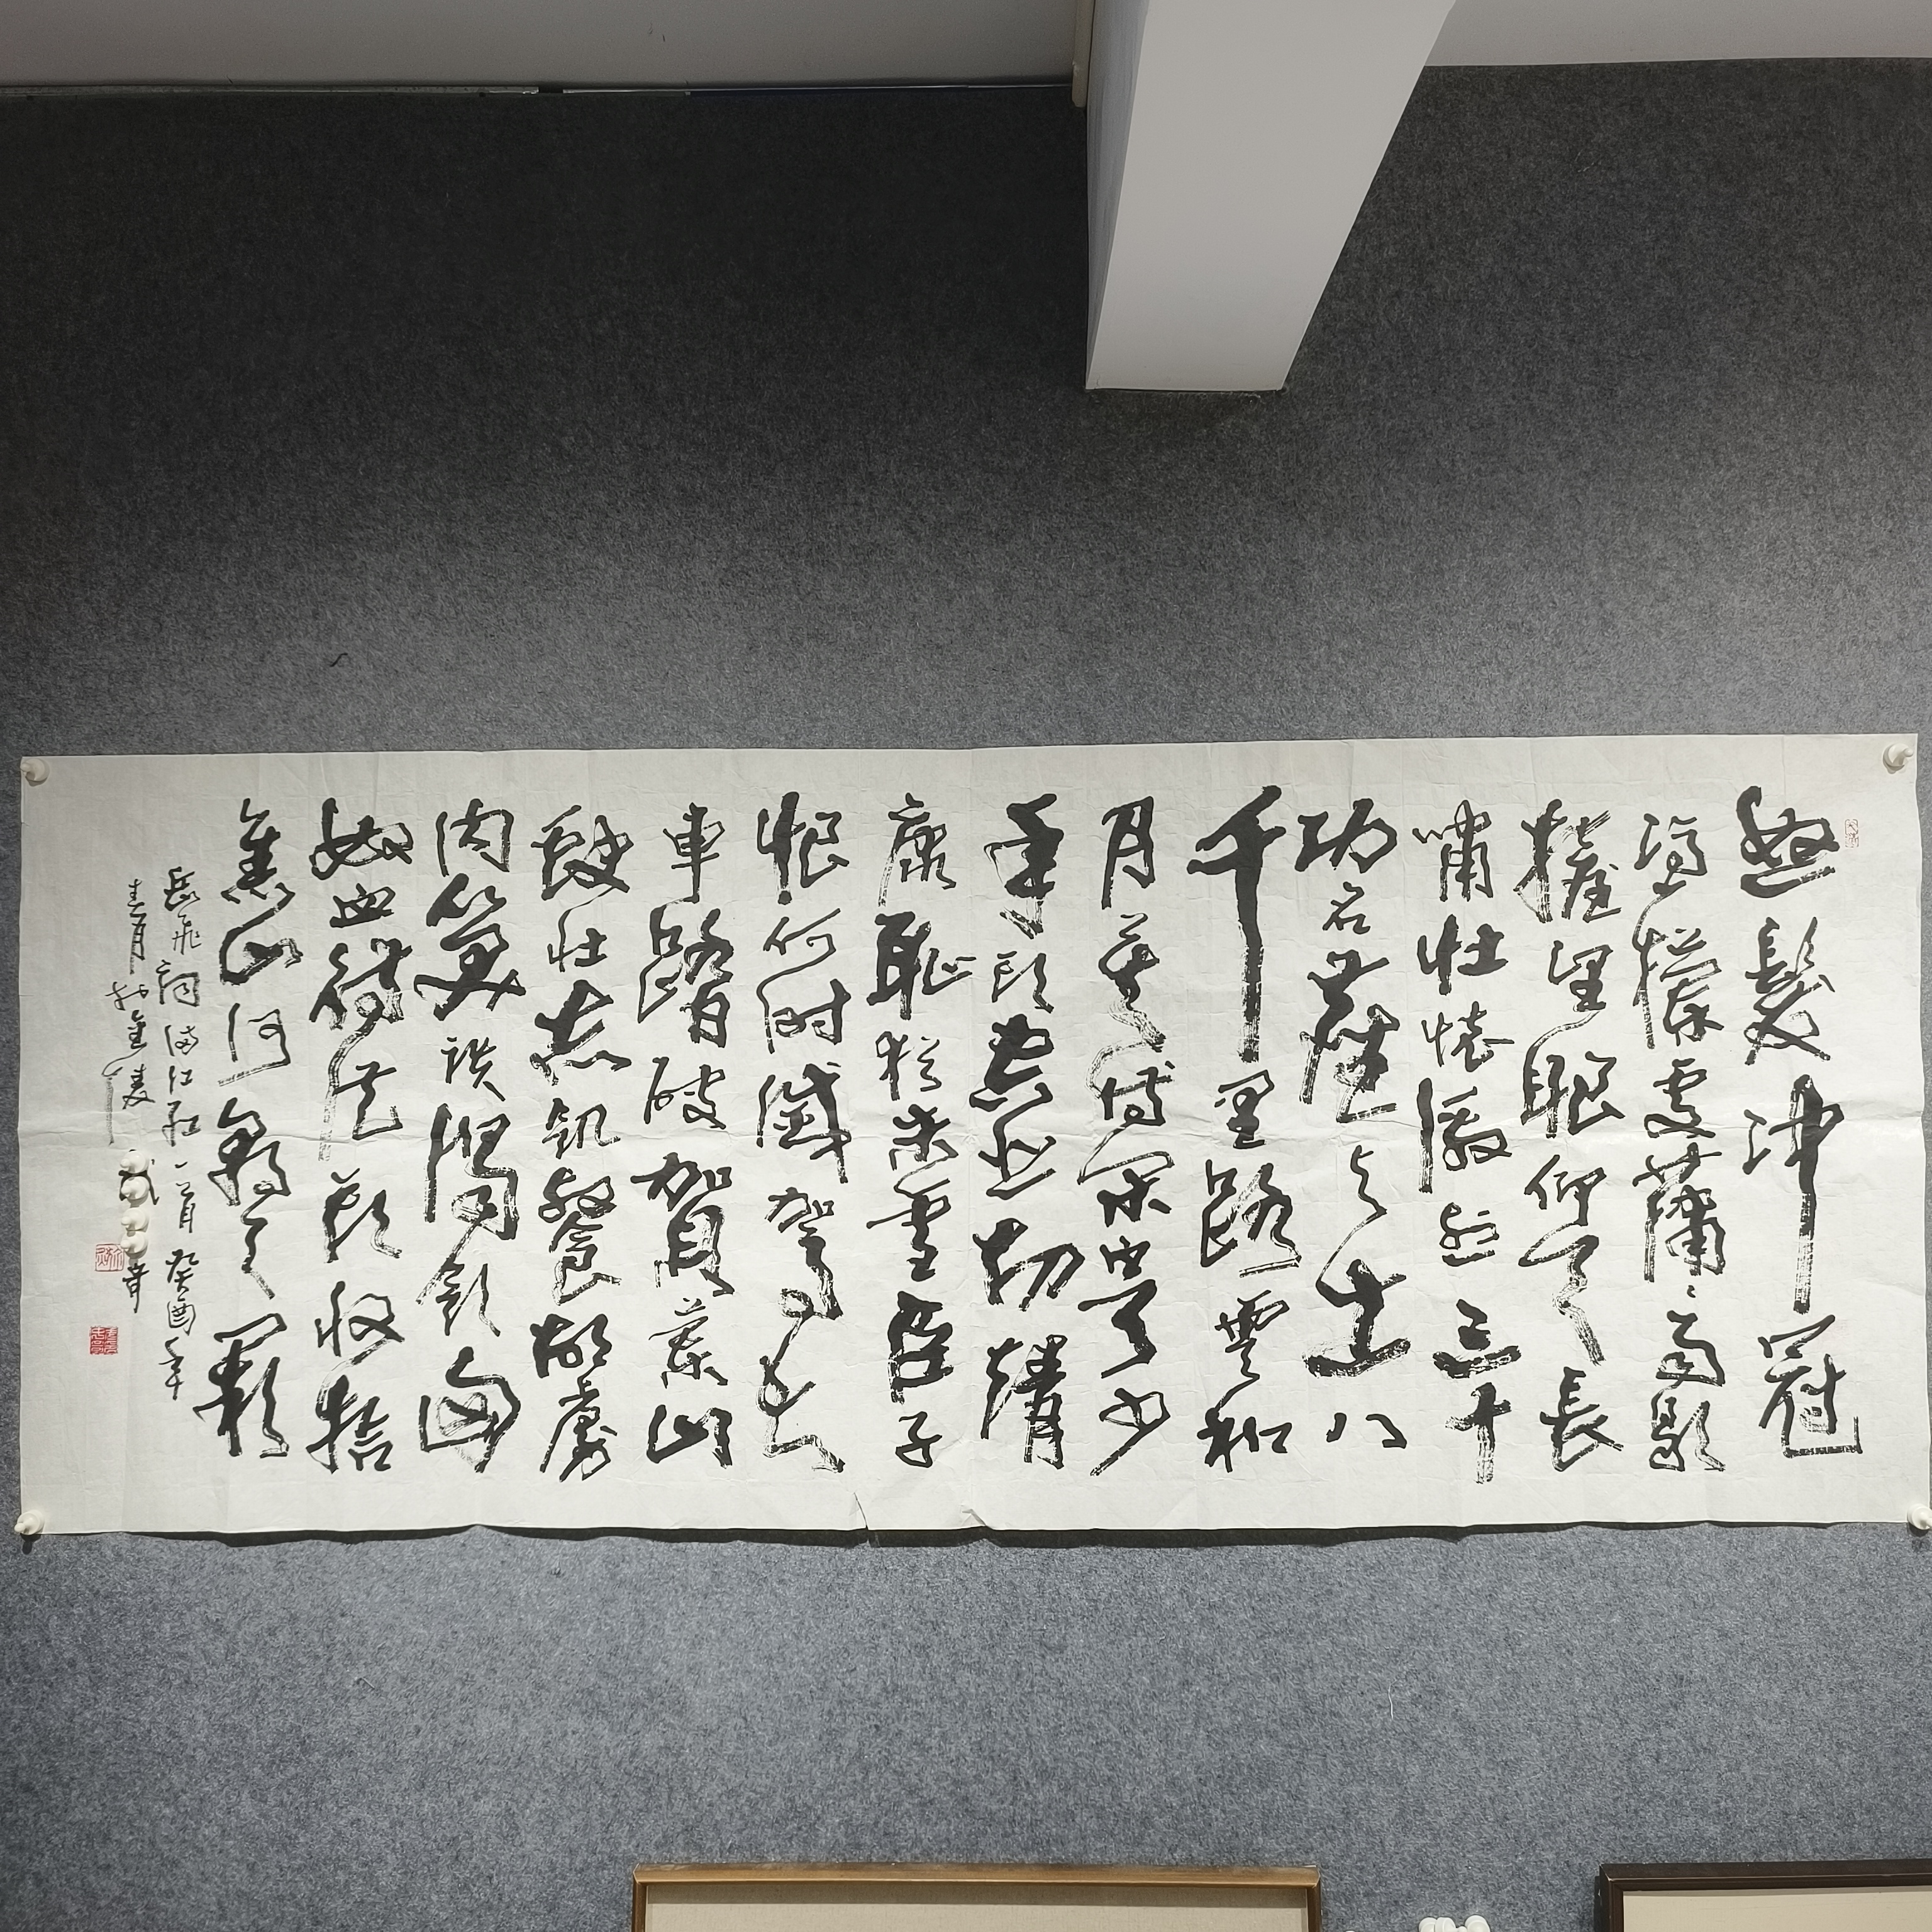 怒髮沖冠
憑欄處瀟〻雨歇
擡望眼仰天長
嘯壯懷激烈三十
功名塵與土八
千里路雲和
月莫等閑白了少
年頭空悲切靖
康恥猶未雪臣子
恨何時滅駕長
車踏破賀蘭山
缺壯志飢餐胡虜
肉笑談渴飲匈
奴血待從頭收拾
舊山河朝天闕
岳飛詞滿江紅一首癸酉年
春月於金陵